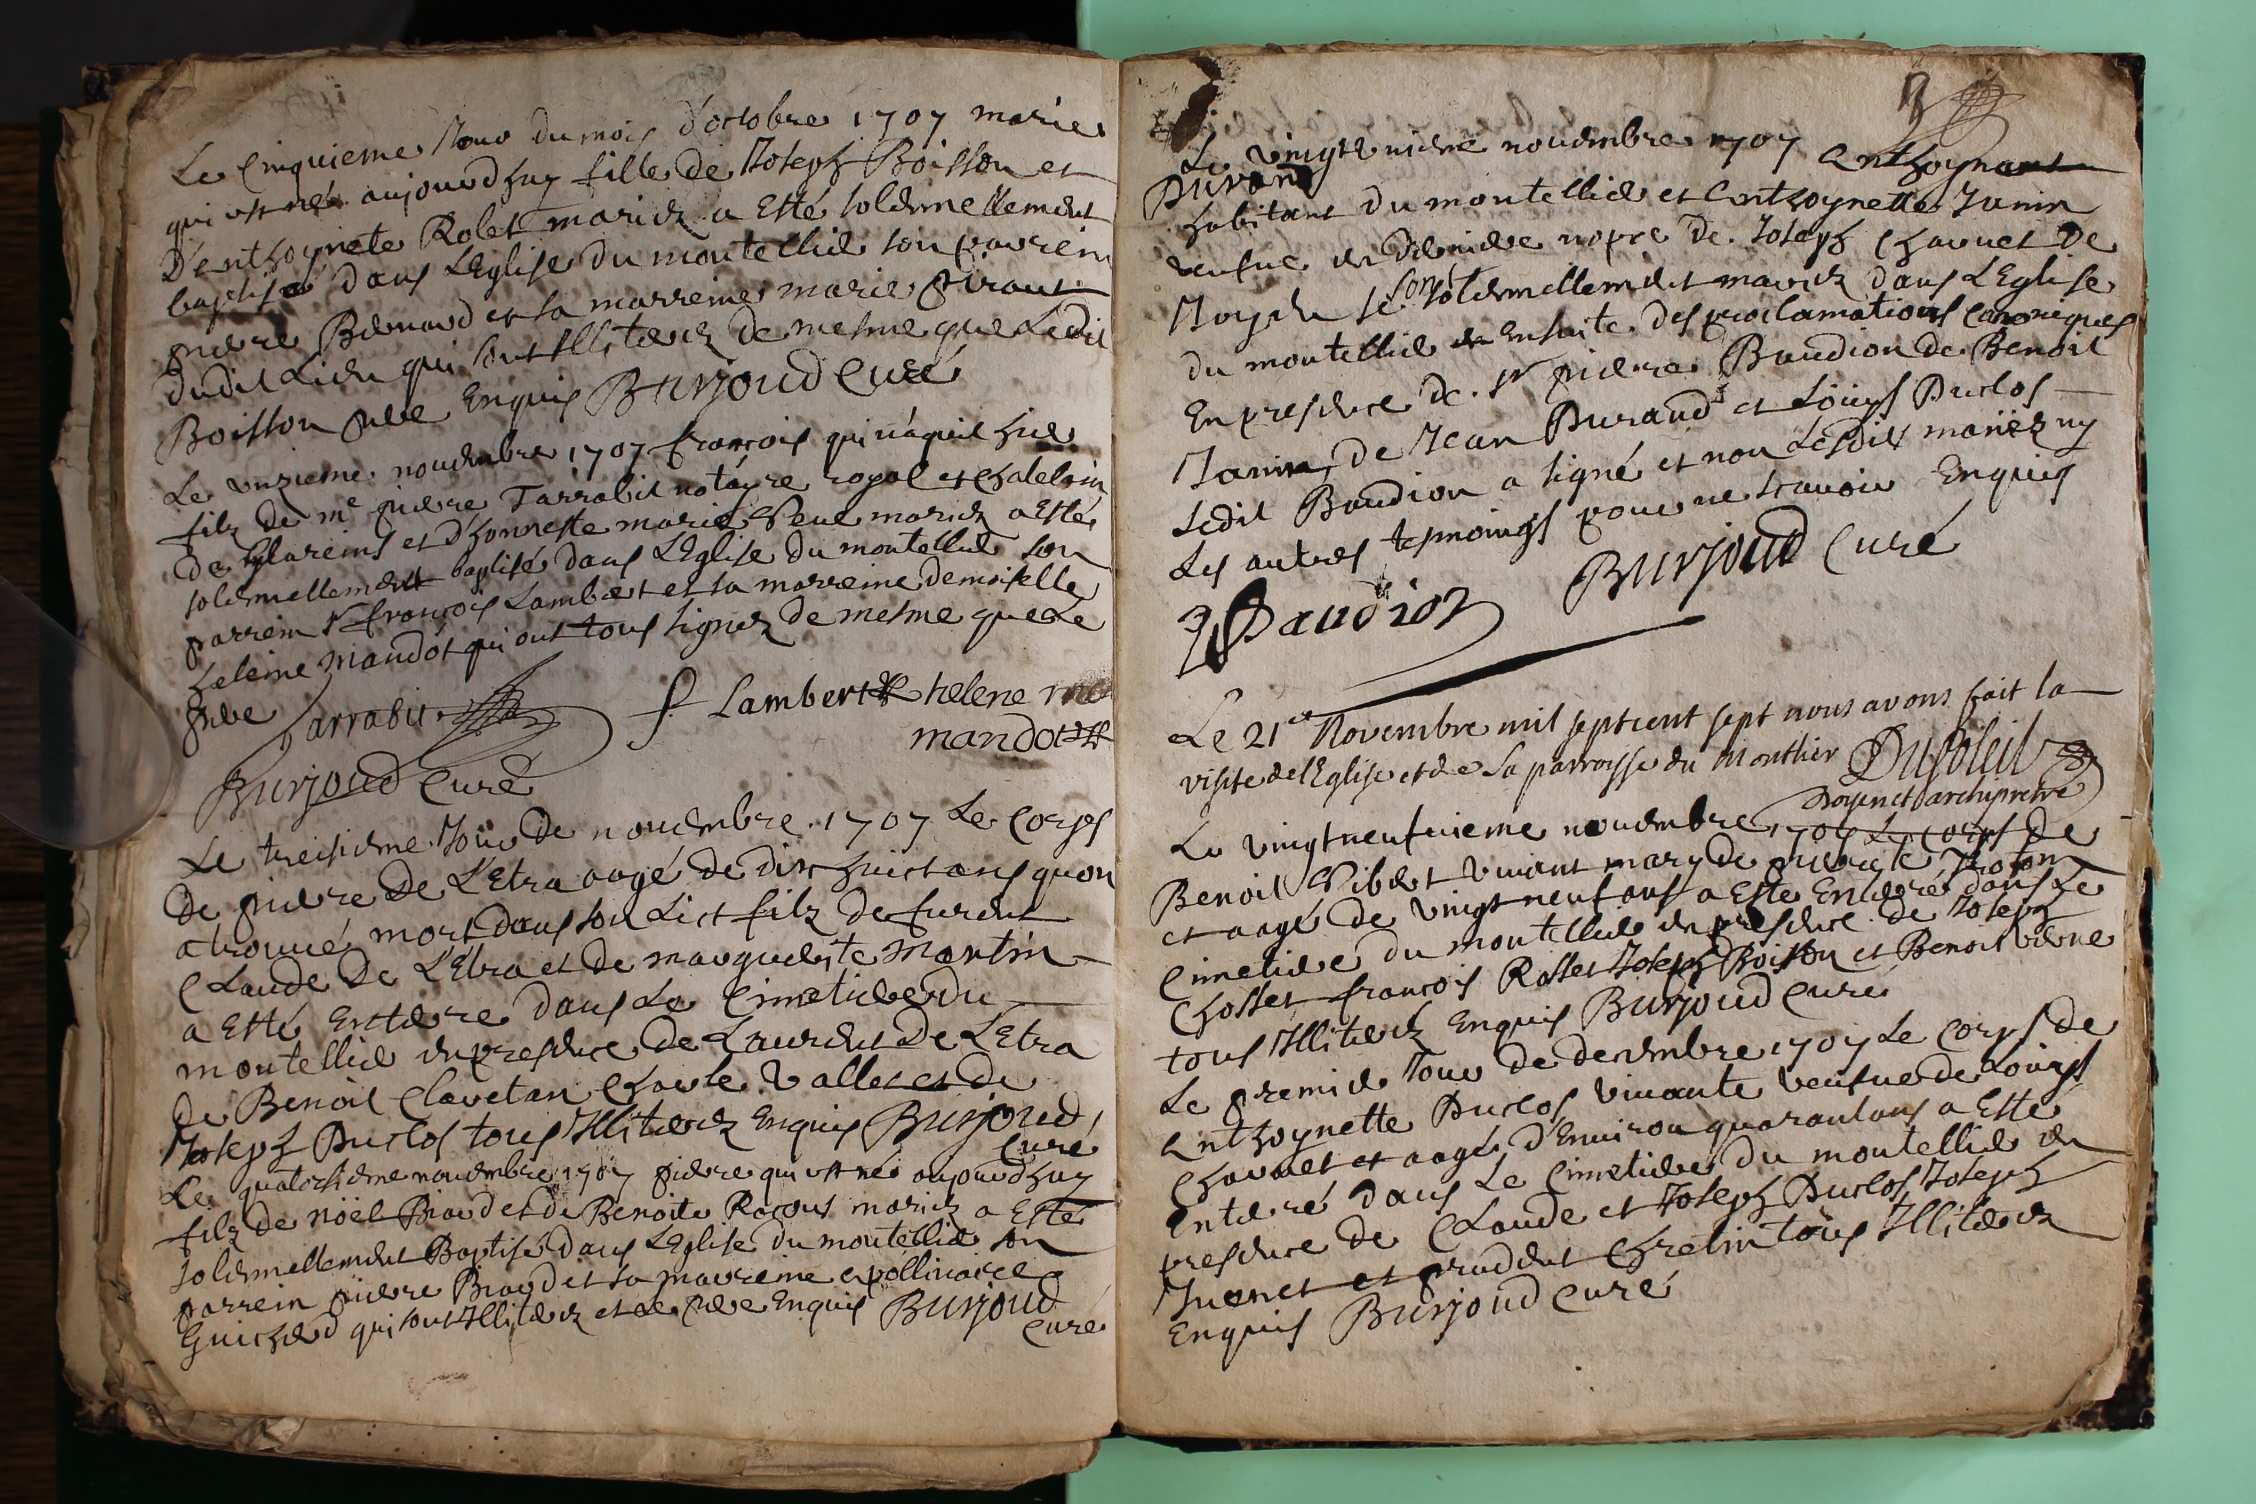 Le Cinquieme Jour du mois d'octobre 1707 marie
qui est née aujourdhuy fille de Joseph Boisson et
D'enthoynete Rolet mariez a Esté solemnellement
baptisée dans L'Eglise du montellier son parrein
pierre Bernard et sa marreine marie Girout
dudit Lieu qui sont Illiterez de mesme que Ledit
Boisson pere Enquis Burjoud Curé
Le unzieme novembre 1707 françois qui náquit hier
filz de me pierre Tarrabit notáyre royal et chatelain
de Glareins et d'honneste marie mariez a Esté
solemnellement baptisé dans L'Eglise du montellier son
parrein sr françois Lambert et sa marreine demoiselle
heleine Mandót qui ont tous signez de mesme que Le
pere Tarrabit f Lambert helene
mandot
Burjoud Curé
Le treisieme Jour de novembre 1707 Le Corps
de pierre De L'Etra aagé de dix huict ans qu'on
a trouué mort dans son Lict filz de furent
Claude De L'Etra et de marguerite Martin
a Esté Enterre dans Le Cimetiere du
montellier en presence de Laurent De L'Etra
de Benoit Clavetan Charle Vallet et de
Joseph Duclos tous Illiterez Enquis Burjoud
Curé
Le quatorsieme novembre 1707 pierre qui est né aujourdhuy
filz de noël Biard et de Benoite Racous mariez a Esté
solemnellement Baptisé dans L'Eglise du montellier son
parrein pierre Biard et sa marreine apollinaire
Guicherd qui sont Illiterez et Le pere Enquis Burjoud
Curé
3
Le novembre 1707 Enthoynant
Durand
habitant du montellier et Enthoynette Janin
veufue en derniere nopce de Joseph Chavuet De
Joyeu se sont solemnellement mariez dans L'Eglise
du montellier Ensuite des proclamations Canoniques
En presence de sr pierre Baudion de Benoit
Janin de Jean Durand et Loüys Duclos
Ledit Baudion a signé et non Lesdits mariez ny
Les autres tesmoings pour ne scauoir Enquis
Baudion Burjoud Curé
Le 21e Novembre mil sept cent sept nous avons fait la
visite de l'Eglise et de la parroysse du Monthier Dusoleil
Doyen et archipretre
Le vingt neufuieme novembre 1707 Le Corps de
Benoit Vibert vivant mary de pierrette
et aagé de vingt neuf ans a Esté Enterré dans Le
Cimetiere du montellier en presence de Joseph
Chosset françois Rosset Joseph Boisson et Benoit
tous Illiterez Enquis Burjoud Curé
Le premier Jour de decembre 1707 Le Corps de
Enthoynette Duclos vivante veufue de Loüys
Chavuet et aagée d'Enuiron quarantans a Esté
Enterré dans Le Cimetiere du montellier en
presence de Claude et Joseph Duclos Joseph
Juenet et pruddent Chretin tous Illiterez
Enquis Burjoud Curé